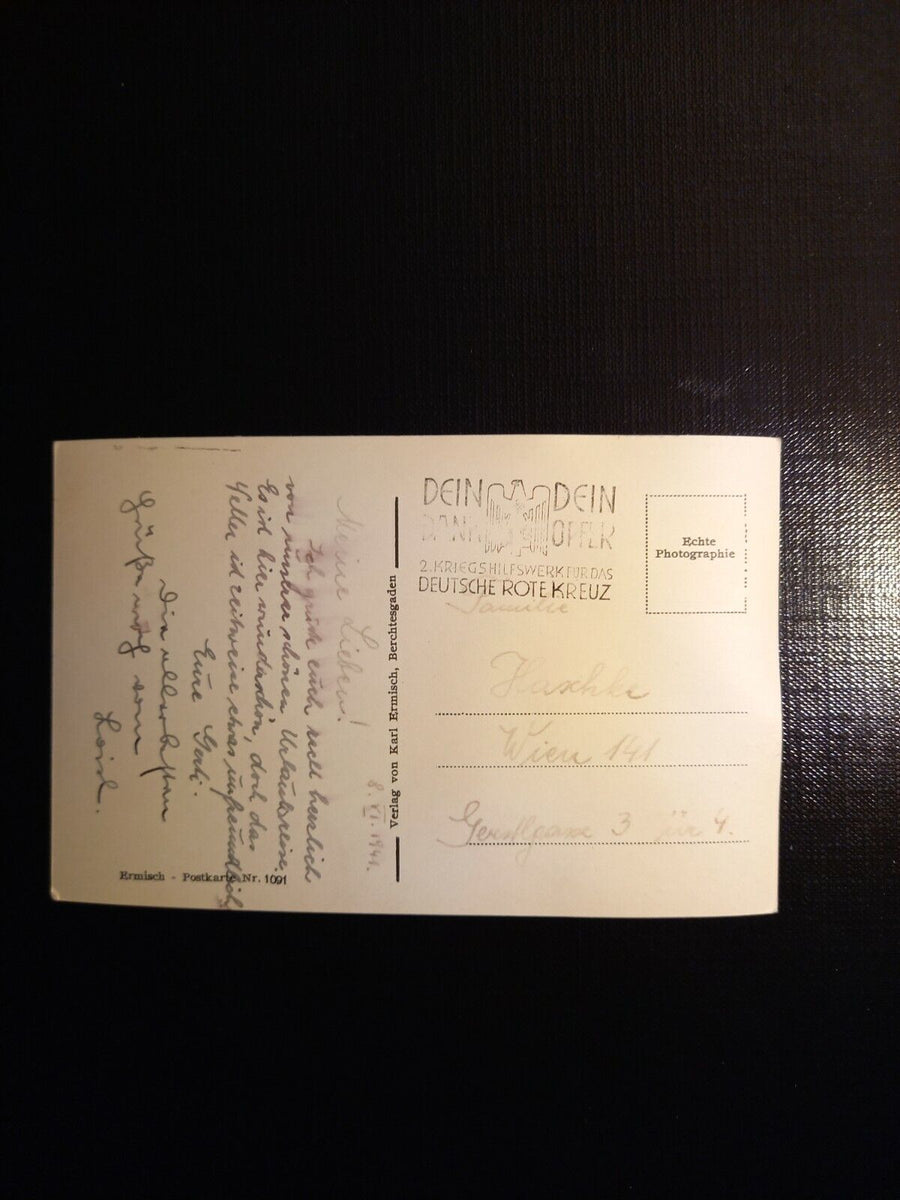 Meine Lieben!
8. VI. 1941.
Ich grüße euch recht herzlich
von unserer schönen Urlaubsreise.
Es ist hier wunderschön, doch das
Wetter ist zeitweise etwas unfreundlich
Eure Gerti.
Die allerbesten
Grüße von
Loisl.
Ermisch - Postkarte Nr. 1091
Verlag von Karl Ermisch, Berchtesgaden
DEIN DEIN
DANK OPFER
2. KRIEGSHILFSWERK FÜR DAS
DEUTSCHE ROTE KREUZ
Echte
Photographie
Familie
Haschke
Wien 141
Gerstlgasse 3 Tür 4.